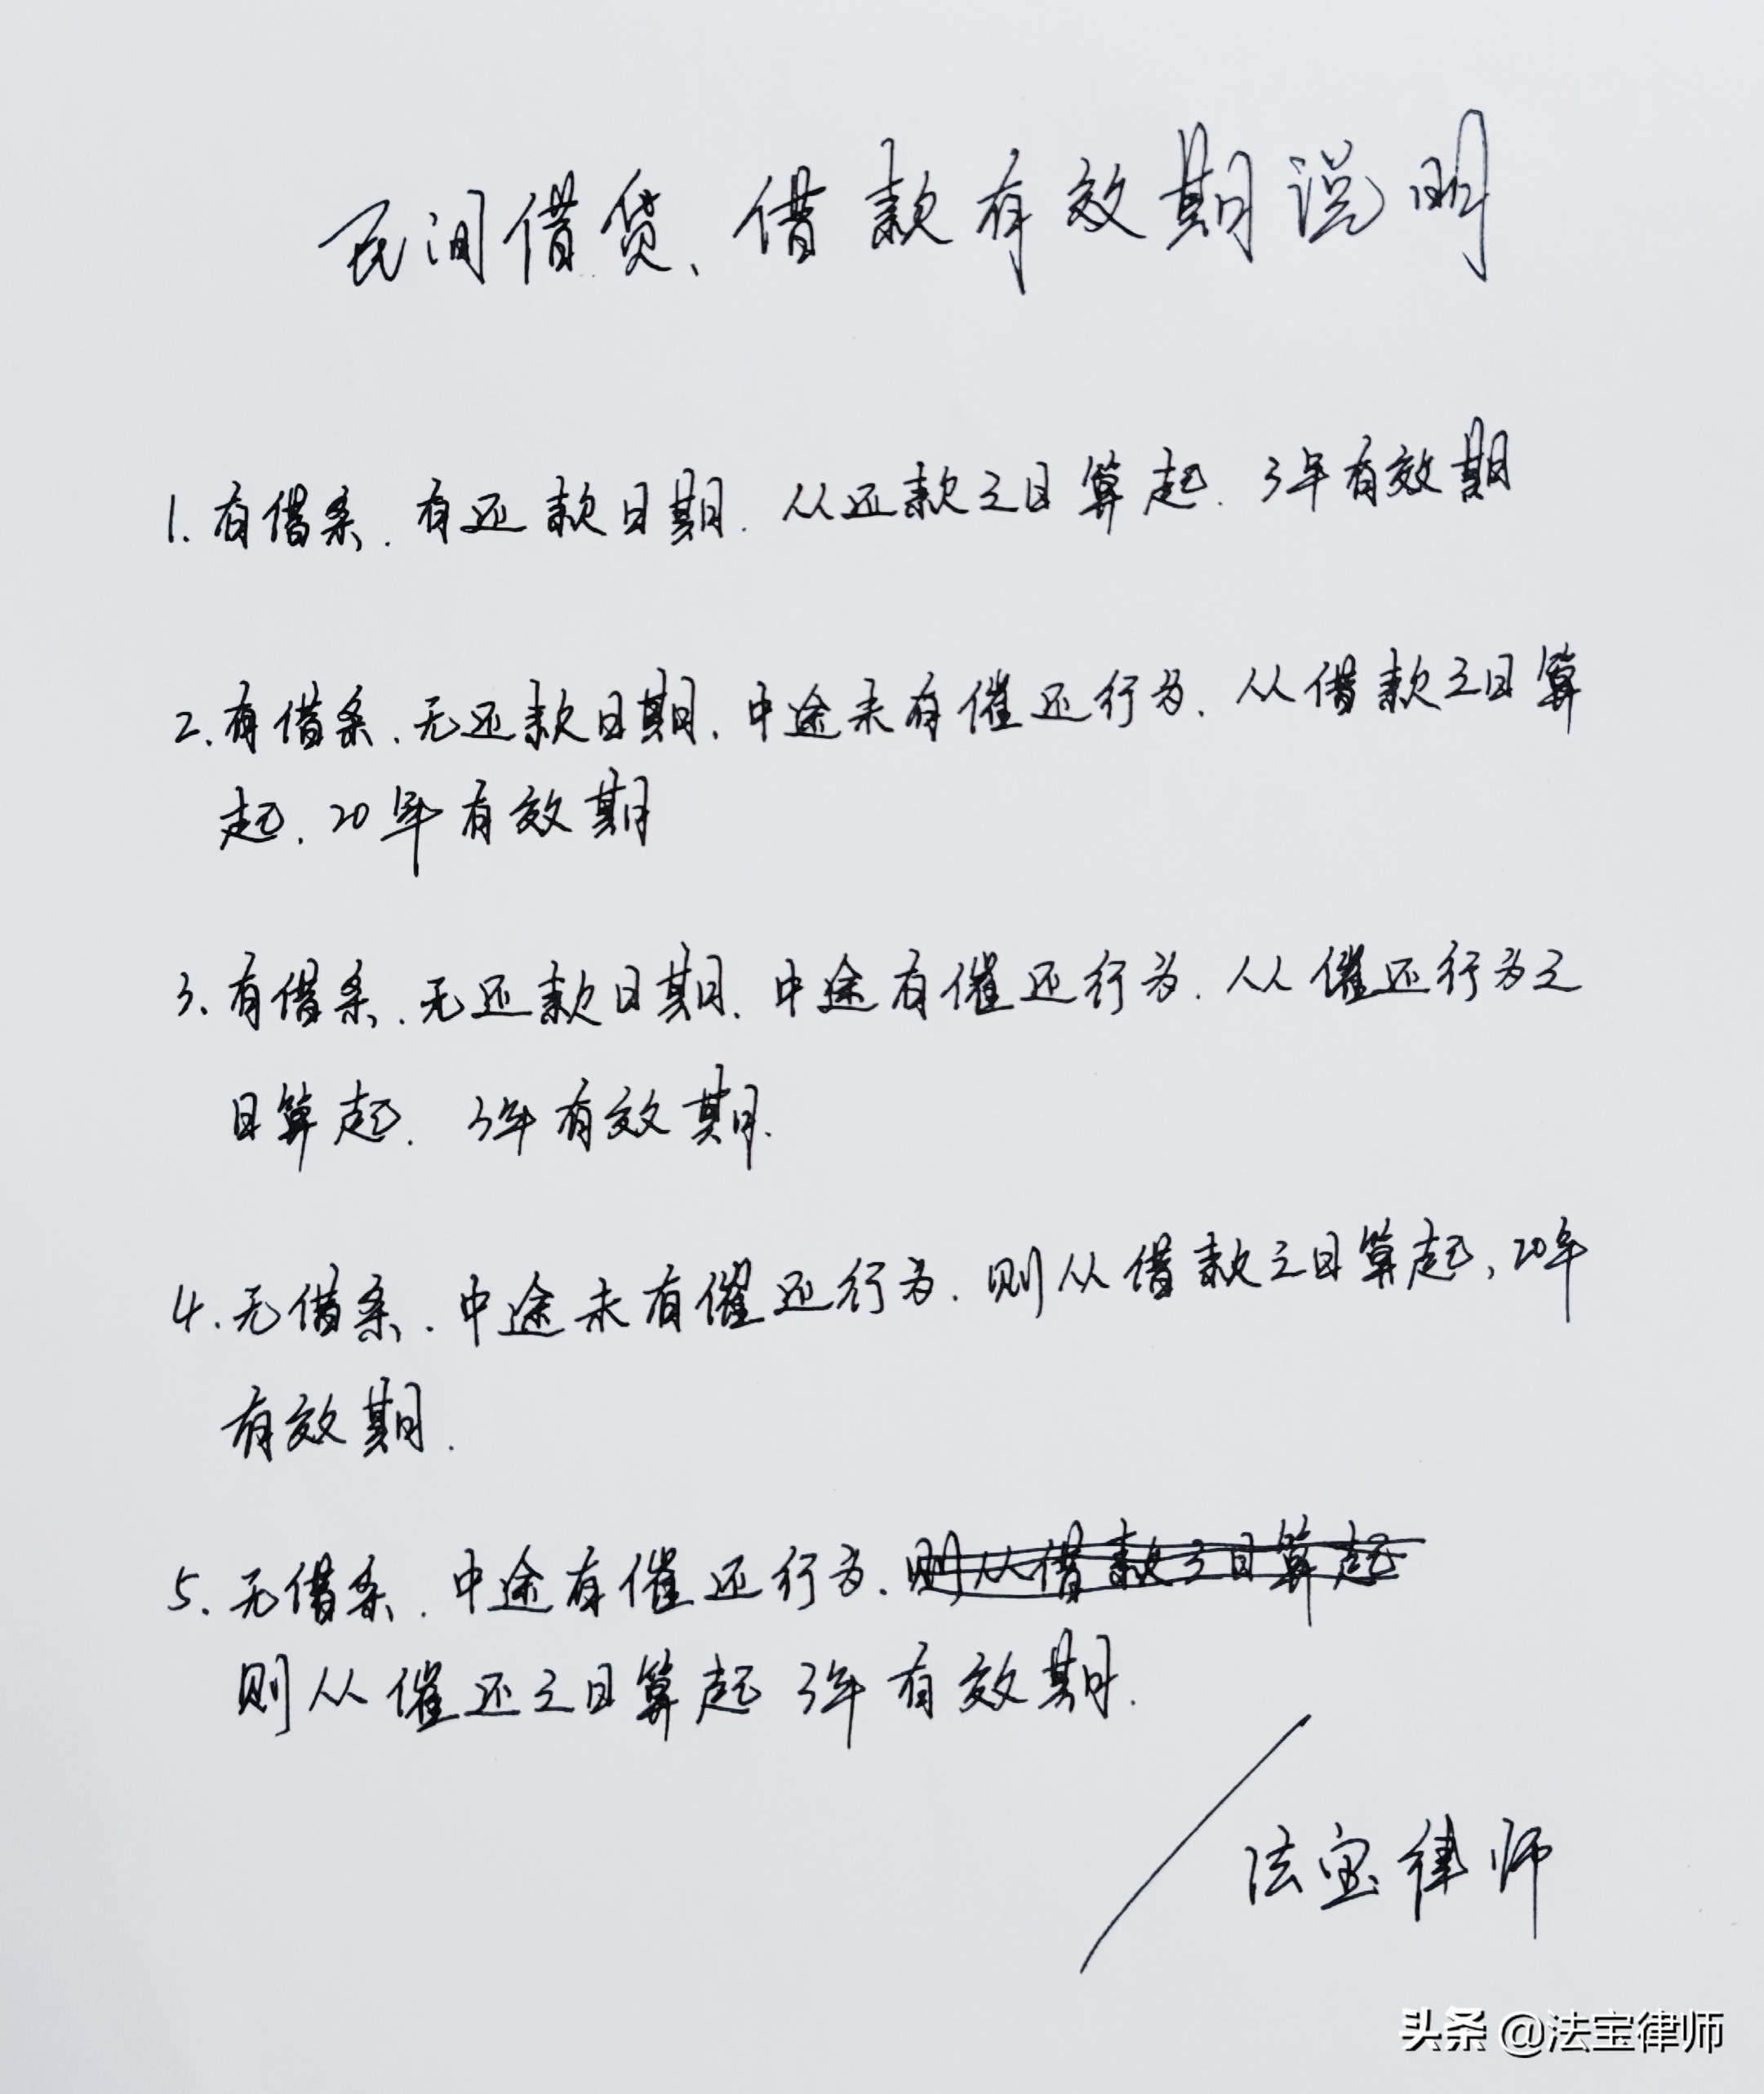 民间借贷、借款有效期说明
1. 有借条.有还款日期.从还款之日算起.3年有效期
2. 有借条.无还款日期.中途未有催还行为.从借款之日算
起.20年有效期
3. 有借条.无还款日期.中途有催还行为.从催还行为之
日算起.3年有效期.
4. 无借条.中途未有催还行为.则从借款之日算起,20年
有效期.
5. 无借条.中途有催还行为.则从借款之日算起
则从催还之日算起 3年有效期.
法宝律师
头条 @法宝律师